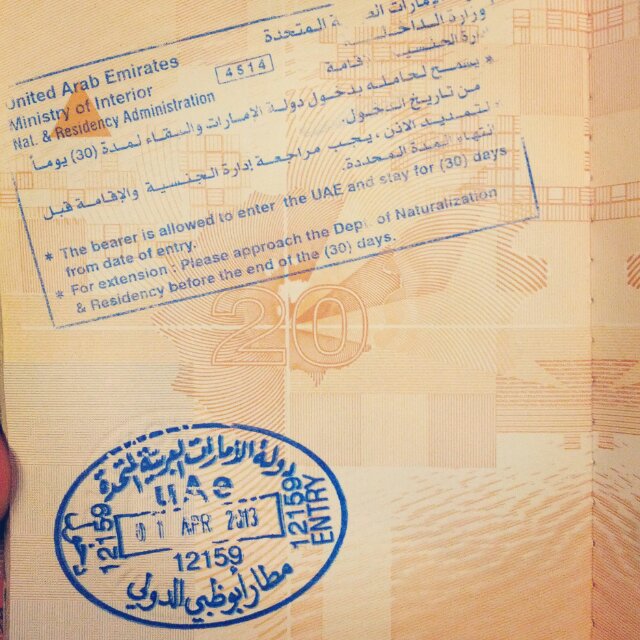 الإمارات العـ ـة المتحدة
وزارة الداخلـ
إدارة الجنسيـ ـقامة
United Arab Emirates
Ministry of Interior
Nat. & Residency Administration
4514
* يسمح لحامله بدخول دولة الإمارات والبقاء لمدة (30) يوماً
من تاريخ الدخول.
لتمديد الاذن ، يجب مراجعة إدارة الجنسية والإقامة قبل
إنتهاء المدة المحددة.
* The bearer is allowed to enter the UAE and stay for (30) days
from date of entry.
* For extension : Please approach the Dept. of Naturalization
& Residency before the end of the (30) days.
20
دولة الأمارات العربية المتحدة
UAe
12159
01 APR 2013
12159
ENTRY
12159
مطار أبوظبي الدولي